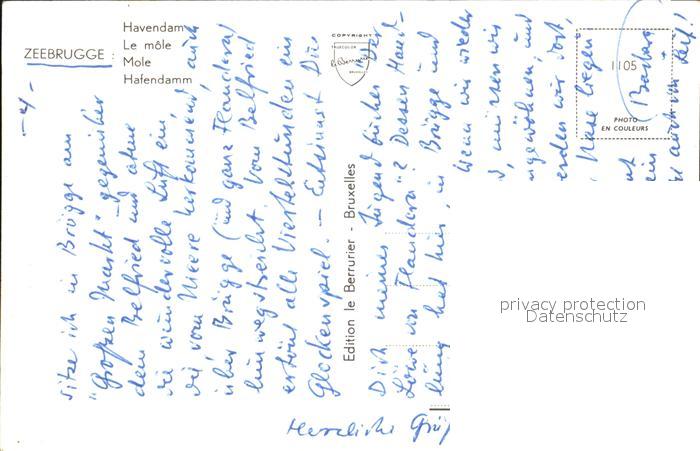 ZEEBRUGGE :
Havendam
Le môle
Mole
Hafendamm
COPYRIGHT
TRUECOLOR
BRUXELLES
1105
PHOTO
EN COULEURS
Edition le Berrurier - Bruxelles
privacy protection
Datenschutz
- 4 -
sitze ich in Brügge am
"Großen Markt" gegenüber
dem Belfried und atme
die wundervolle Luft ein,
die vom Meere herkommend, auch
über Brügge (und ganz Flandern)
hinwegstreicht. Vom Belfried
ertönt alle Viertelstunden ein
Glockenspiel. - Entsinnst Du
Dich meines Jugendbuches "Der
Löwe von Flandern"? Dessen Hand-
lung hat hier, in Brügge und
wenn wir wieder
müssen wir
und
wir dort,
liegen
ein
Barbar
auch von
Herzliche Grüß